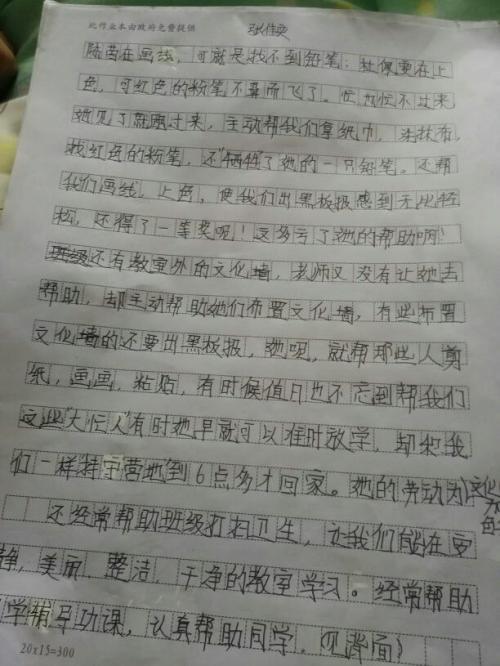 此作业本由政府免费提供
陆茜在画线，可就是找不到铅笔；杜佩雯在上
色，可红色的粉笔不翼而飞了。忙忙不过来
她见了就跑过来，主动帮我们拿纸巾，抹布，
找红色的粉笔，还"牺牲"了她的一只铅笔。还帮
我们画线，上色，使我们出黑板报感到无比轻
松，还得了一等奖呢！这多亏了她的帮助啊！
还有教室外的文化墙，老师又没有让她去
帮助，却主动帮助她们布置文化墙，有些布置
文化墙的还要出黑板报，她呢，就帮那些人剪
纸，画画，粘贴，有时候值日也不忘到帮我们
这些"大忙人"有时她早就可以准时放学，却和我
们一样"特守营地"到6点多才回家。她的劳动为文化
还经常帮助班级打扫卫生，让我们能在安
静，美丽，整洁，干净的教室学习。经常帮助
学辅导功课，认真帮助同学。（见背面）
20x15=300